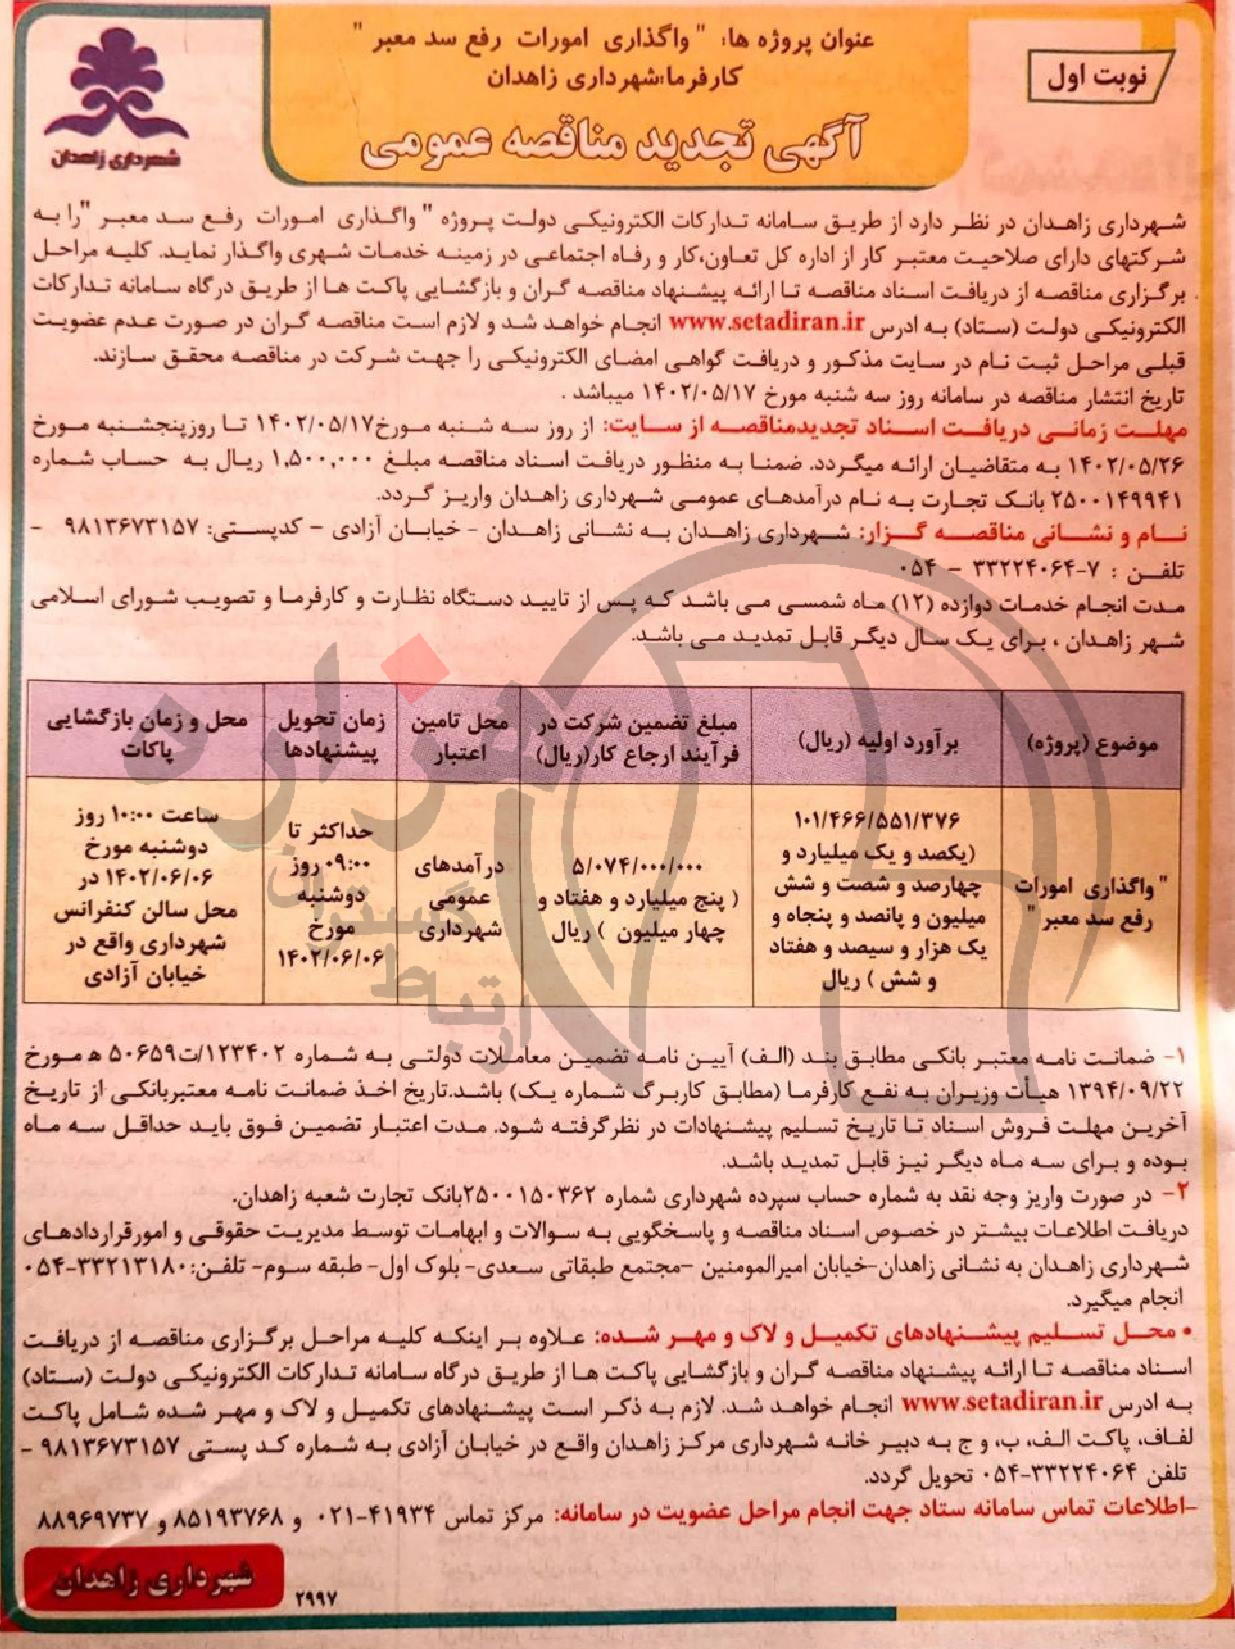 عنوان پروژه ها: " واگذاری امورات رفع سد معبر "
کارفرما:شهرداری زاهدان
نوبت اول
آگهی تجدید مناقصه عمومی
شهرداری زاهدان
شهرداری زاهدان در نظر دارد از طریق سامانه تدارکات الکترونیکی دولت پروژه " واگذاری امورات رفع سد معبر "را به
شرکتهای دارای صلاحیت معتبر کار از اداره کل تعاون،کار و رفاه اجتماعی در زمینه خدمات شهری واگذار نماید. کلیه مراحل
برگزاری مناقصه از دریافت اسناد مناقصه تا ارائه پیشنهاد مناقصه گران و بازگشایی پاکت ها از طریق درگاه سامانه تدارکات
الکترونیکی دولت (ستاد) به ادرس www.setadiran.ir انجام خواهد شد و لازم است مناقصه گران در صورت عدم عضویت
قبلی مراحل ثبت نام در سایت مذکور و دریافت گواهی امضای الکترونیکی را جهت شرکت در مناقصه محقق سازند.
تاریخ انتشار مناقصه در سامانه روز سه شنبه مورخ ۱۴۰۲/۰۵/۱۷ میباشد .
مهلت زمانی دریافت اسناد تجدیدمناقصه از سایت: از روز سه شنبه مورخ۱۴۰۲/۰۵/۱۷ تا روزپنجشنبه مورخ
۱۴۰۲/۰۵/۲۶ به متقاضیان ارائه میگردد. ضمنا به منظور دریافت اسناد مناقصه مبلغ ۱,۵۰۰,۰۰۰ ریال به حساب شماره
۲۵۰۰۱۴۹۹۴۱ بانک تجارت به نام درآمدهای عمومی شهرداری زاهدان واریز گردد.
نام و نشانی مناقصه گزار: شهرداری زاهدان به نشانی زاهدان - خیابان آزادی – کدپستی: ۹۸۱۳۶۷۳۱۵۷ -
تلفن : ۷-۳۳۲۲۴۰۶۴ – ۰۵۴
مدت انجام خدمات دوازده (۱۲) ماه شمسی می باشد که پس از تایید دستگاه نظارت و کارفرما و تصویب شورای اسلامی
شهر زاهدان ، برای یک سال دیگر قابل تمدید می باشد.
موضوع (پروژه)
برآورد اولیه (ریال)
مبلغ تضمین شرکت در
فرآیند ارجاع کار(ریال)
محل تامین
اعتبار
زمان تحویل
پیشنهادها
محل و زمان بازگشایی
پاکات
" واگذاری امورات
رفع سد معبر "
۱۰۱/۴۶۶/۵۵۱/۳۷۶
(یکصد و یک میلیارد و
چهارصد و شصت و شش
میلیون و پانصد و پنجاه و
یک هزار و سیصد و هفتاد
و شش ) ریال
۵/۰۷۴/۰۰۰/۰۰۰
( پنج میلیارد و هفتاد و
چهار میلیون ) ریال
درآمدهای
عمومی
شهرداری
حداکثر تا
۰۹:۰۰ روز
دوشنبه
مورخ
۱۴۰۲/۰۶/۰۶
ساعت ۱۰:۰۰ روز
دوشنبه مورخ
۱۴۰۲/۰۶/۰۶ در
محل سالن کنفرانس
شهرداری واقع در
خیابان آزادی
هزاره
ارتباط گستران
۱- ضمانت نامه معتبر بانکی مطابق بند (الف) آیین نامه تضمین معاملات دولتی به شماره ۱۲۳۴۰۲/ت۵۰۶۵۹ ه مورخ
۱۳۹۴/۰۹/۲۲ هیأت وزیران به نفع کارفرما (مطابق کاربرگ شماره یک) باشد.تاریخ اخذ ضمانت نامه معتبربانکی از تاریخ
آخرین مهلت فروش اسناد تا تاریخ تسلیم پیشنهادات در نظرگرفته شود. مدت اعتبار تضمین فوق باید حداقل سه ماه
بوده و برای سه ماه دیگر نیز قابل تمدید باشد.
۲- در صورت واریز وجه نقد به شماره حساب سپرده شهرداری شماره ۲۵۰۰۱۵۰۳۶۲بانک تجارت شعبه زاهدان.
دریافت اطلاعات بیشتر در خصوص اسناد مناقصه و پاسخگویی به سوالات و ابهامات توسط مدیریت حقوقی و امورقراردادهای
شهرداری زاهدان به نشانی زاهدان-خیابان امیرالمومنین -مجتمع طبقاتی سعدی- بلوک اول- طبقه سوم- تلفن:۳۳۲۱۳۱۸۰-۰۵۴
انجام میگیرد.
• محل تسلیم پیشنهادهای تکمیل و لاک و مهر شده: علاوه بر اینکه کلیه مراحل برگزاری مناقصه از دریافت
اسناد مناقصه تا ارائه پیشنهاد مناقصه گران و بازگشایی پاکت ها از طریق درگاه سامانه تدارکات الکترونیکی دولت (ستاد)
به ادرس www.setadiran.ir انجام خواهد شد. لازم به ذکر است پیشنهادهای تکمیل و لاک و مهر شده شامل پاکت
لفاف، پاکت الف، ب، و ج به دبیر خانه شهرداری مرکز زاهدان واقع در خیابان آزادی به شماره کد پستی ۹۸۱۳۶۷۳۱۵۷ -
تلفن ۳۳۲۲۴۰۶۴-۰۵۴ تحویل گردد.
-اطلاعات تماس سامانه ستاد جهت انجام مراحل عضویت در سامانه: مرکز تماس ۴۱۹۳۴-۰۲۱ و ۸۵۱۹۳۷۶۸ و ۸۸۹۶۹۷۳۷
شهرداری زاهدان
۲۹۹۷